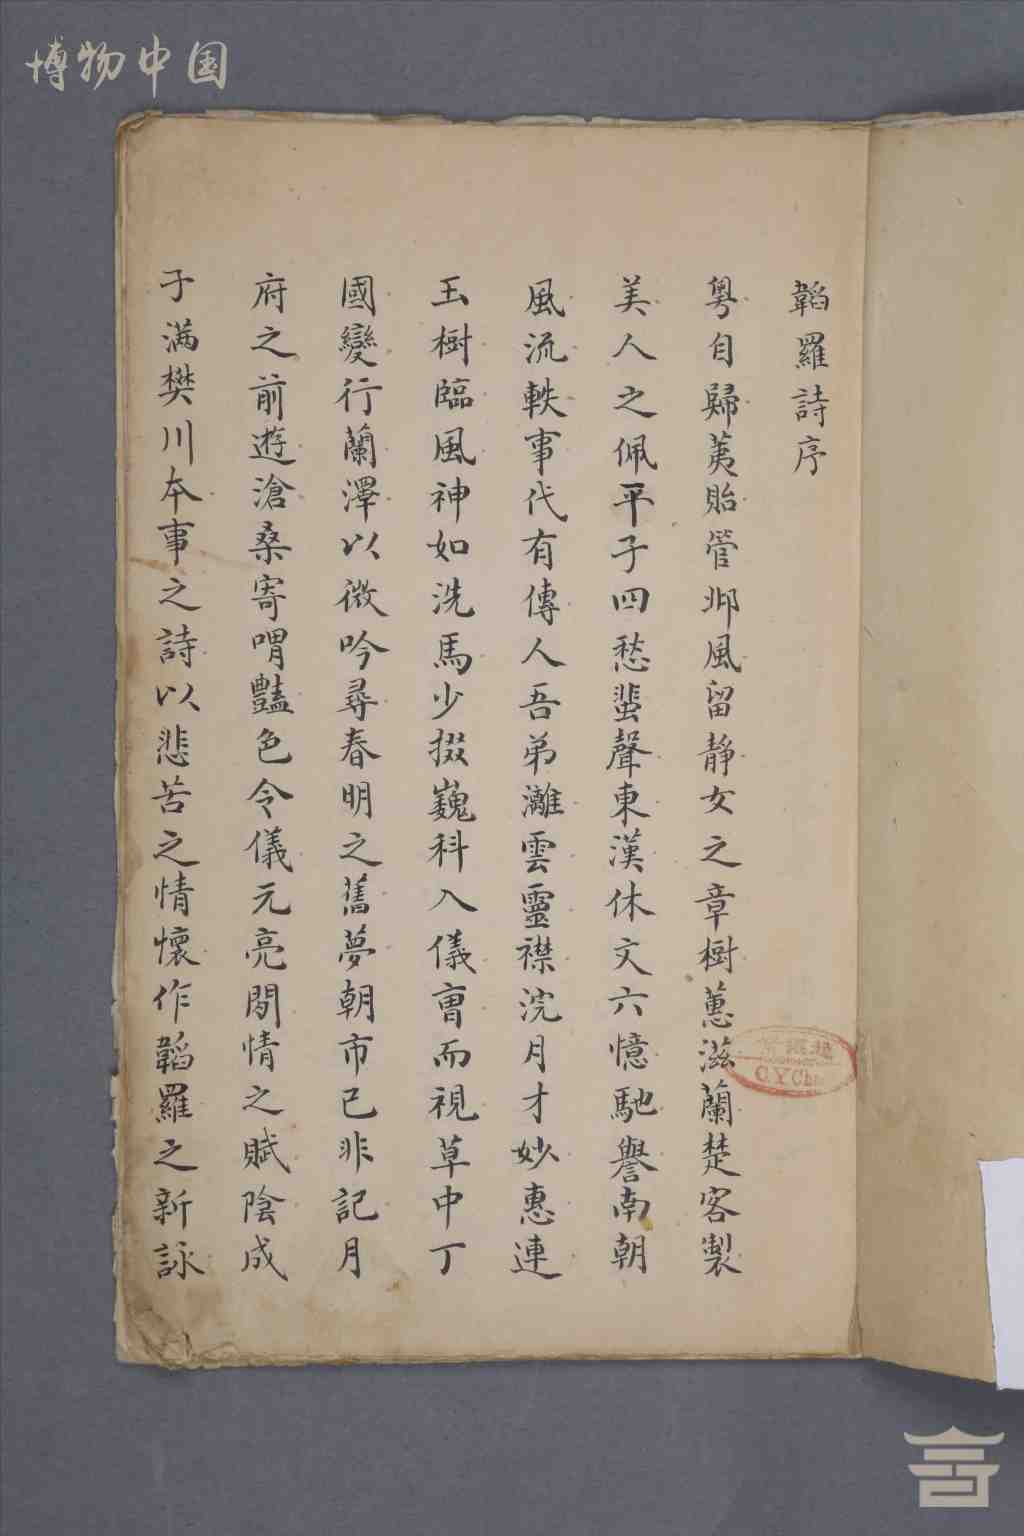 博物中国
韜羅詩序
粵自歸荑貽管邶風留靜女之章樹蕙滋蘭楚客製
美人之佩平子四愁蜚聲東漢休文六憶馳譽南朝
風流軼事代有傳人吾弟灕雲靈襟浣月才妙惠連
玉樹臨風神如洗馬少掇巍科入儀曹而視草中丁
國變行蘭澤以微吟尋春明之舊夢朝市已非記月
府之前遊滄桑寄喟豔色令儀元亮閒情之賦陰成
子滿樊川本事之詩以悲苦之情懷作韜羅之新詠
C.Y.Ch